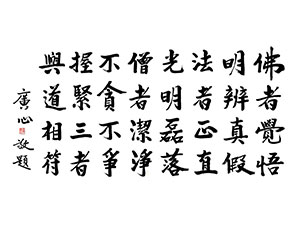 佛者覺悟
明辨真假
法者正直
光明磊落
僧者潔淨
不貪不爭
握緊三者
與道相符
廣心敬題